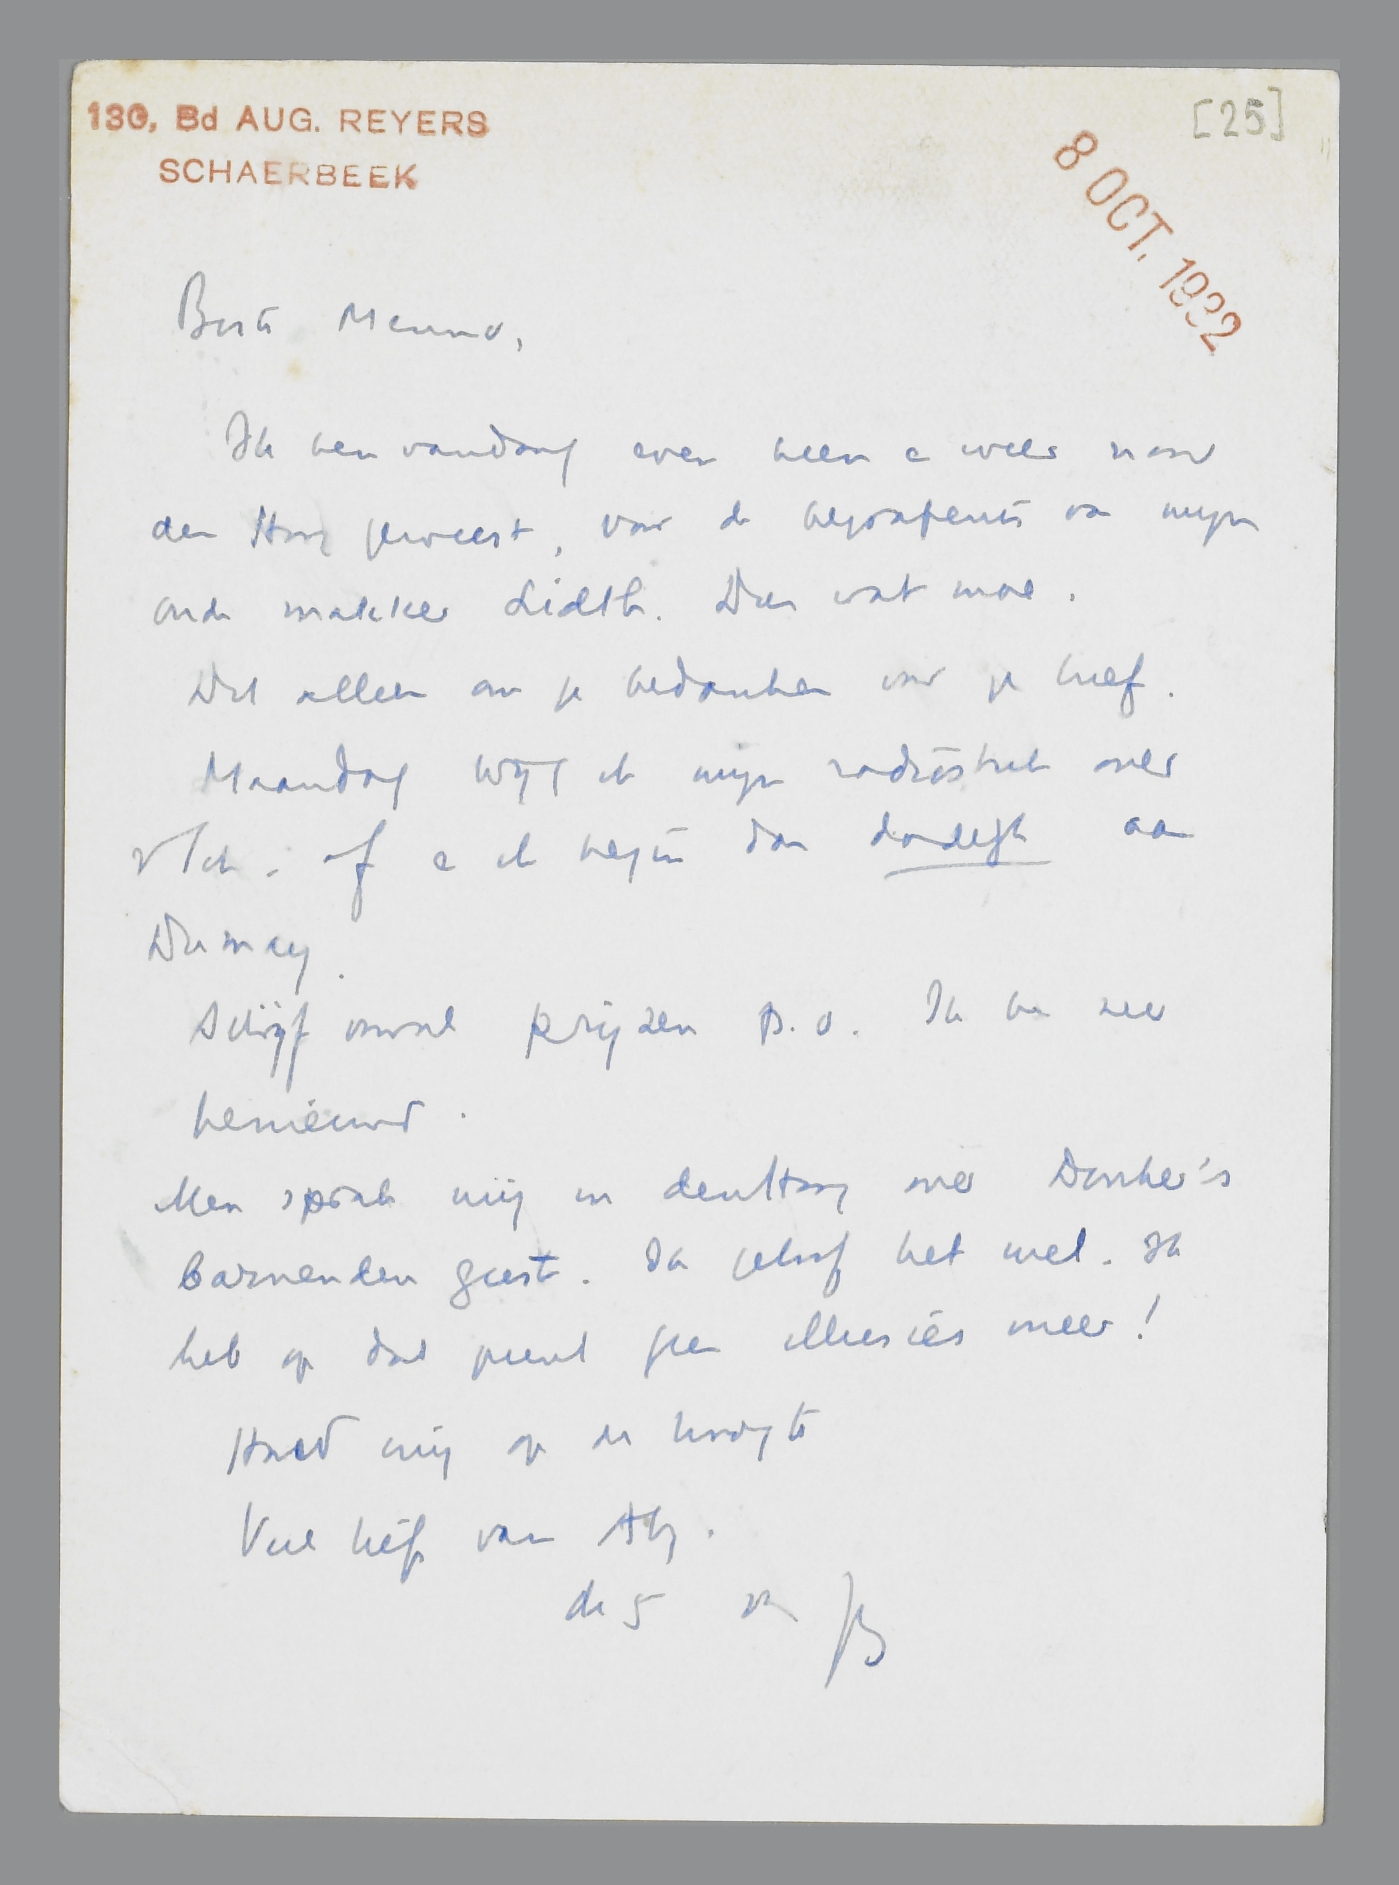 130, Bd AUG. REYERS
SCHAERBEEK
[25]
8 OCT. 1932
Beste Menno,
Ik ben vandaag even heen e weer naar
den Haag geweest, voor de begrafenis van mijn
oude makker Lidth. Dus wat moe.
Dit alleen om je bedanken voor je brief.
Maandag krijg ik mijn radiostuk over
af en ik begin dan dadelijk aan
Dumay.
Schrijf vooral Prijzen P. v. Ik ben zeer
benieuwd.
Men sprak mij in den Haag over Donker's
barnenden geest. Ik geloof het wel. Ik
heb op dat punt geen illusies meer!
Houd mij op de hoogte
Veel liefs van Atj.
de 5 van JB